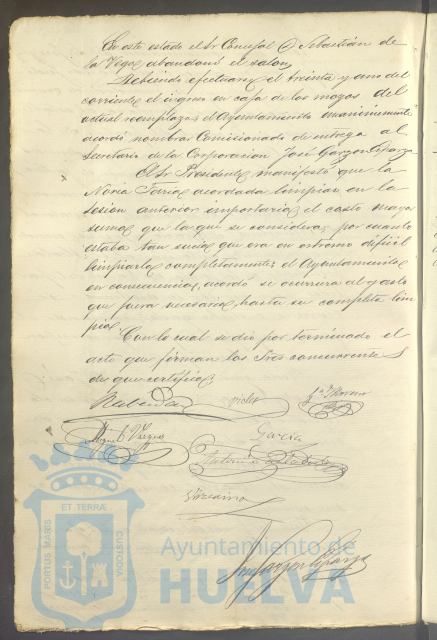 En este estado el Sr Concejal D Sebastián de
la Vega abandonó el salon,
Debiendo efectuarse el treinta y uno del
corriente el ingreso en caja de los mozos del
actual reemplazo, el Ayuntamiento unanimemente
acordó nombrar Comisionado de entrega al
Secretario de la Corporacion José Garzon Ceparza
El Sr Presidente manifestó que la
Noria acordada limpiar en la
sesion anterior importaria el costo mayor
suma que la que se considera, por cuanto
estaba tan sucia que era en estremo dificil
limpiarla completamente; el Ayuntamiento
en consecuencia, acordó se ocurriera al gasto
que fuera necesario, hasta su completa lim-
pia.
Con lo cual se dio por terminado el
acto que firman los Sres concurrentes
de que certifico,
Moreno
Miguel Vazquez
Garcia
Antonio
Vizcaino
José Garzon Ceparza
PORTUS MARIS ET TERRAE CUSTODIA
Ayuntamiento de
HUELVA